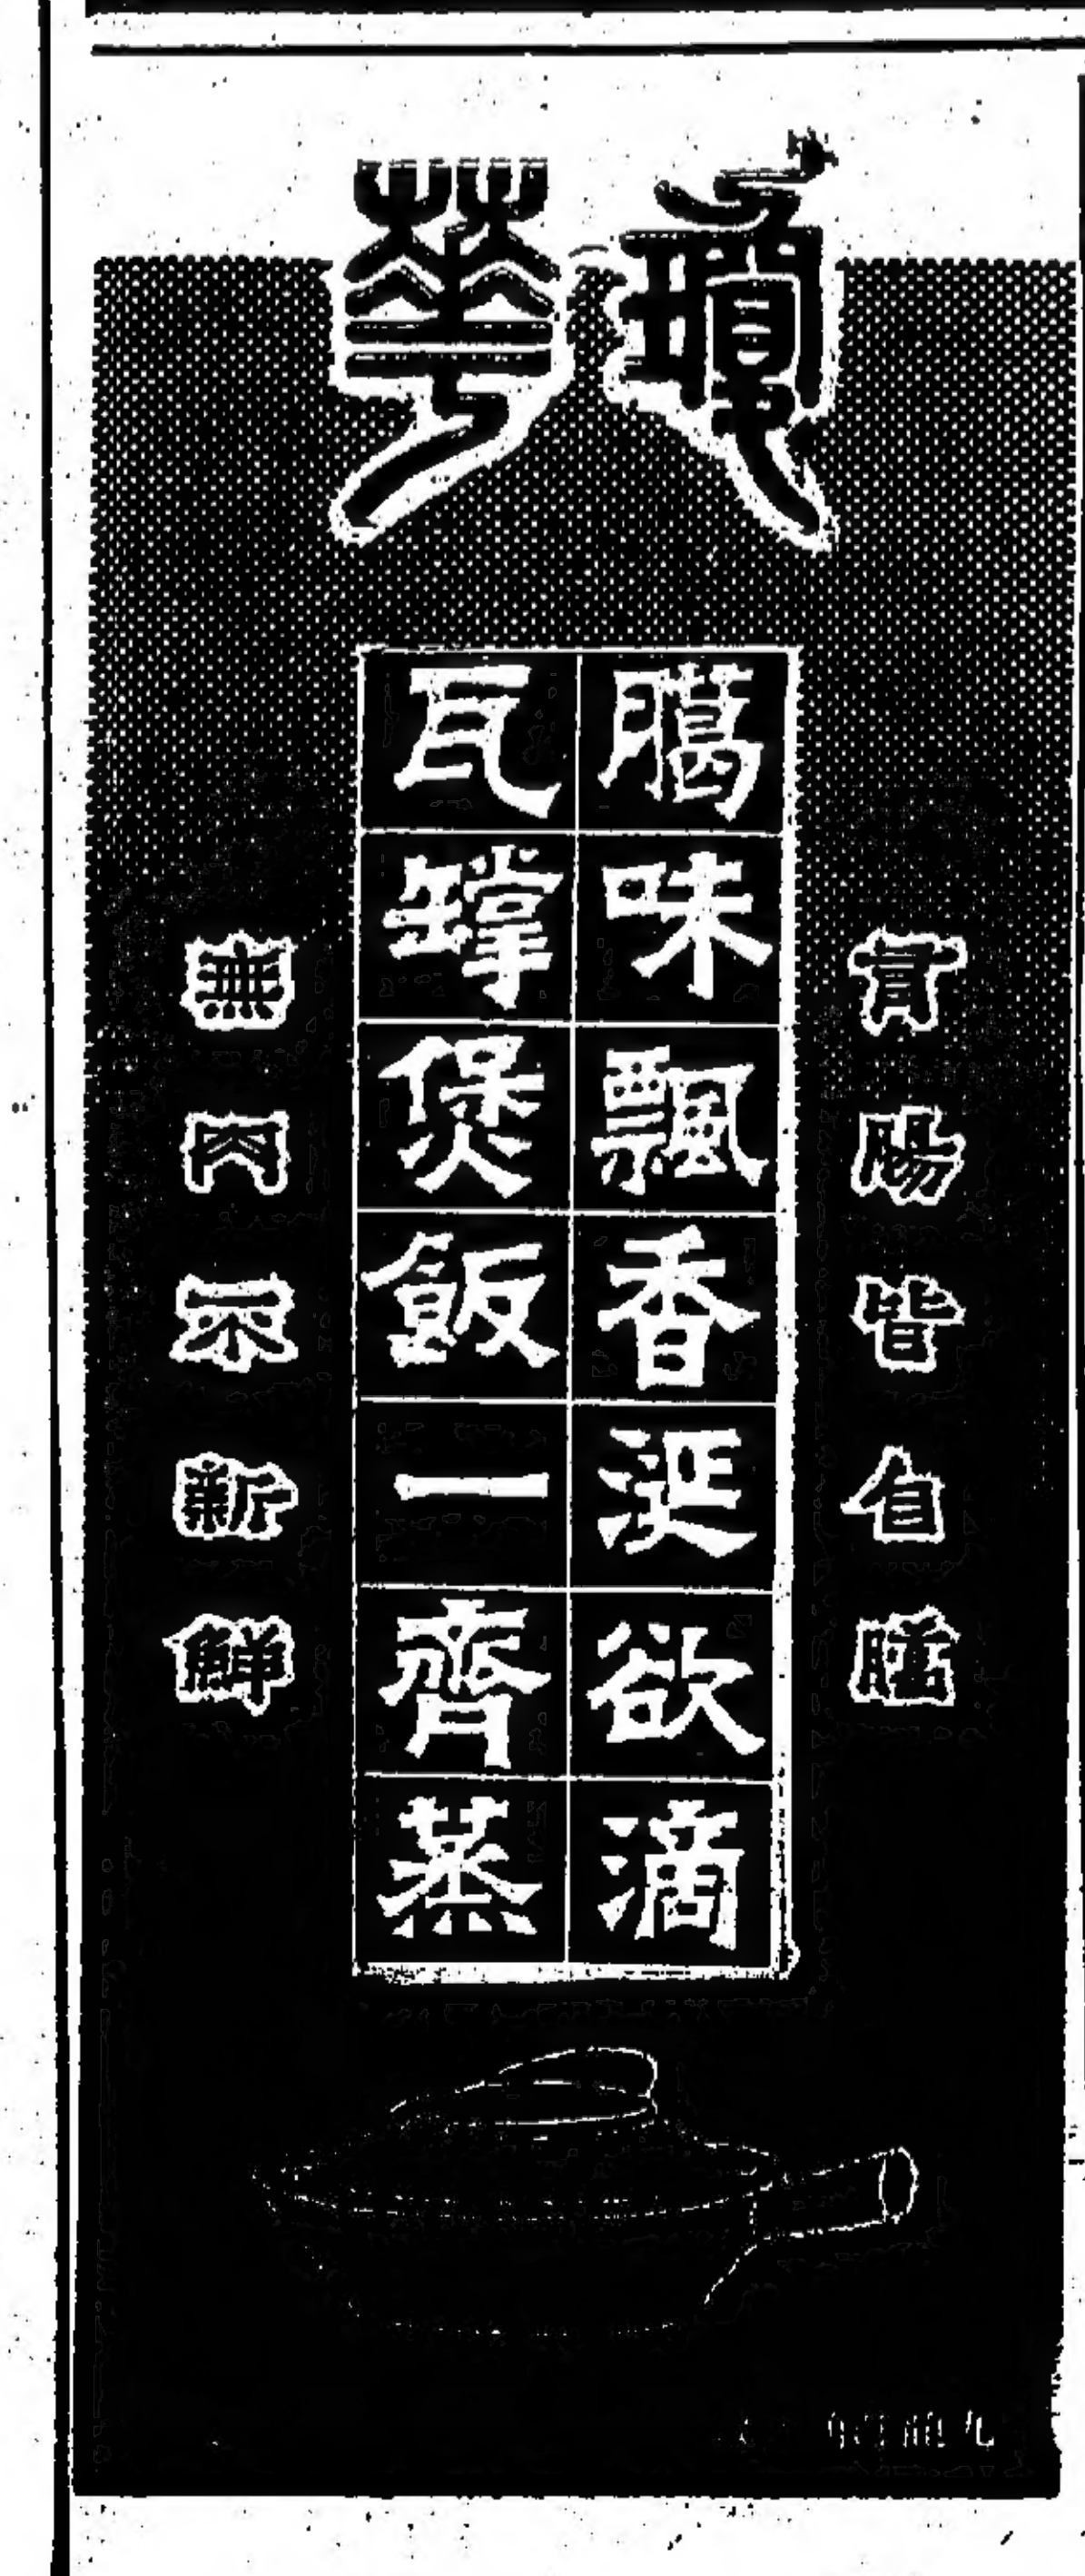 瓊華
有腸皆自
臈味飄香涎欲滴
瓦罉煲飯一齊蒸
無肉不新鮮